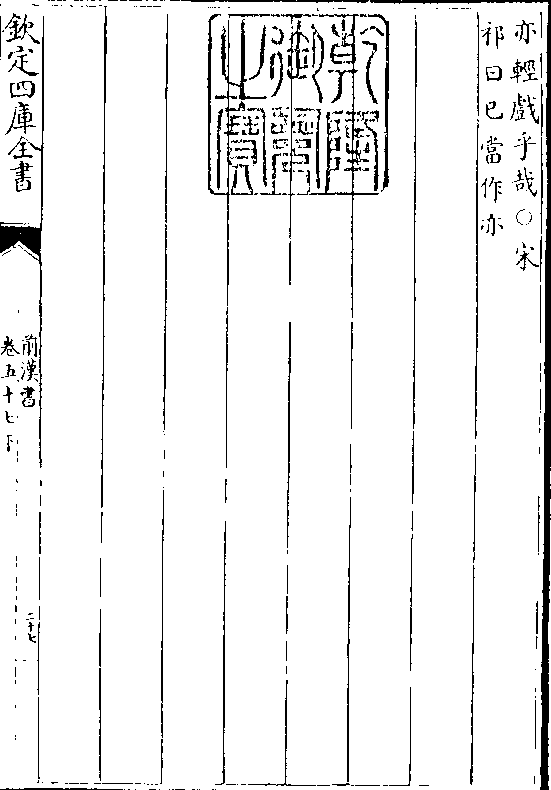 亦輕戲乎哉○宋
祁曰已當作亦
乾隆御覽之寶
欽定四庫全書
前漢書
卷五十七下
二十七